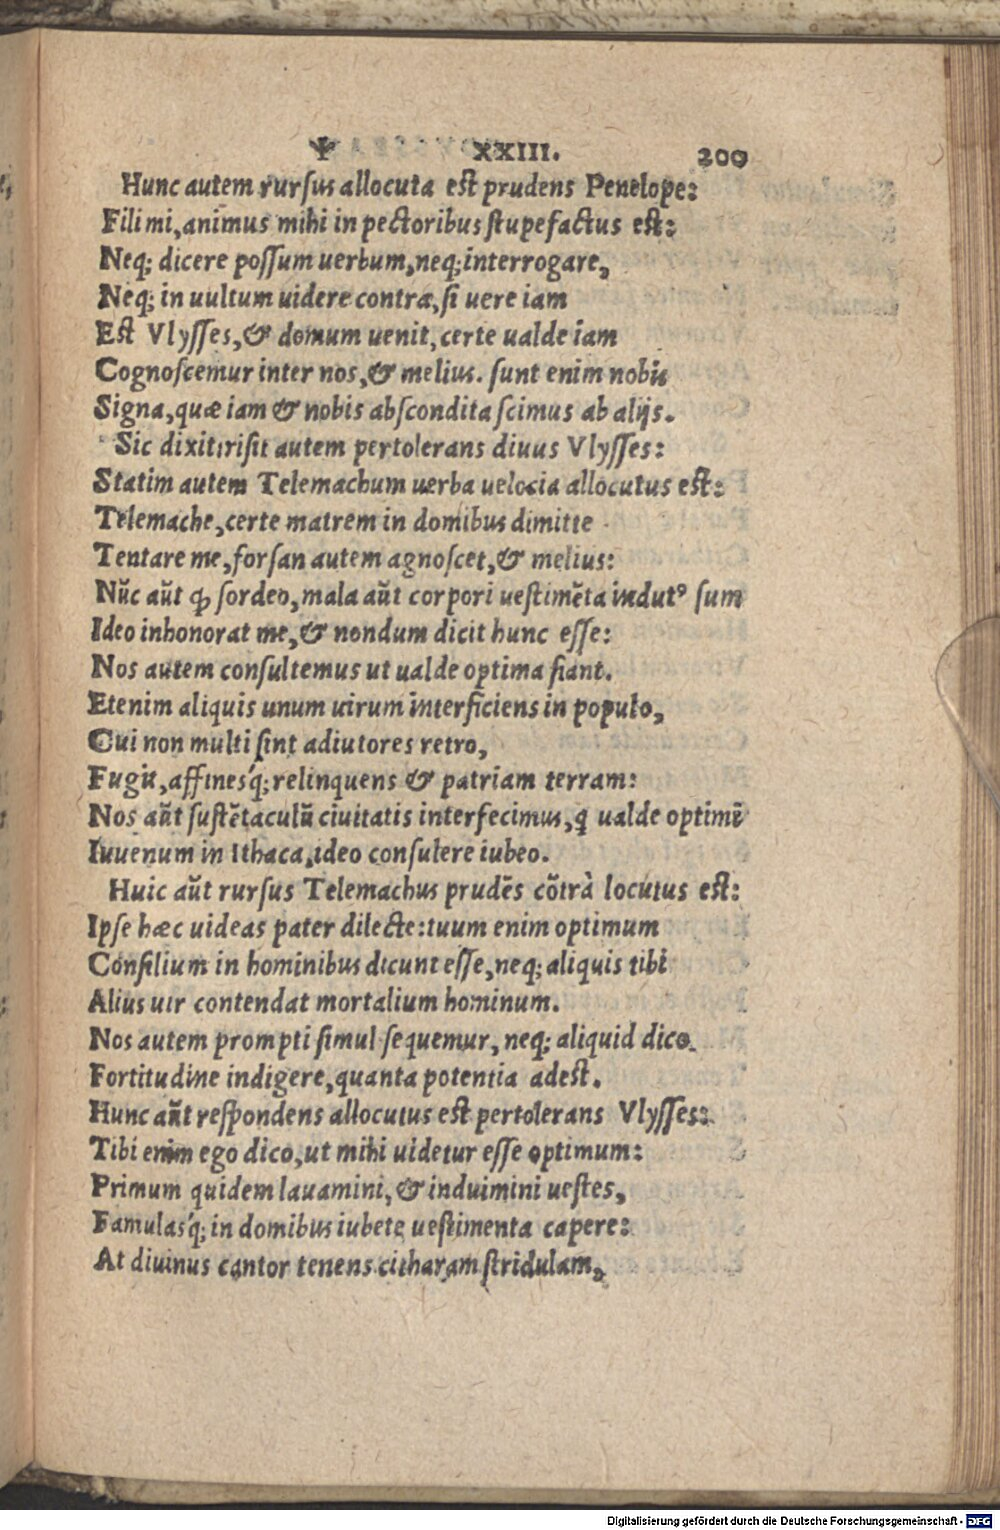 Ψ XXIII. 200
Hunc autem rursus allocuta est prudens Penelope:
Fili mi, animus mihi in pectoribus stupefactus est:
Neq; dicere possum uerbum, neq; interrogare,
Neq; in uultum uidere contra, si uere iam
Est Vlysses, & domum uenit, certe ualde iam
Cognoscemur inter nos, & melius. sunt enim nobis
Signa, quæ iam & nobis abscondita scimus ab alijs.
Sic dixit: risit autem pertolerans diuus Vlysses:
Statim autem Telemachum uerba uelocia allocutus est:
Telemache, certe matrem in domibus dimitte
Tentare me, forsan autem agnoscet, & melius:
Nūc aūt ꝙ sordeo, mala aūt corpori uestimēta indutꝰ sum
Ideo inhonorat me, & nondum dicit hunc esse:
Nos autem consultemus ut ualde optima fiant.
Etenim aliquis unum uirum interficiens in populo,
Cui non multi sint adiutores retro,
Fugit, affinesq́; relinquens & patriam terram:
Nos aūt sustētaculū ciuitatis interfecimus, q ualde optimi
Iuuenum in Ithaca, ideo consulere iubeo.
Huic aūt rursus Telemachus prudēs cōtrà locutus est:
Ipse hæc uideas pater dilecte: tuum enim optimum
Consilium in hominibus dicunt esse, neq; aliquis tibi
Alius uir contendat mortalium hominum.
Nos autem prompti simul sequemur, neq; aliquid dico
Fortitudine indigere, quanta potentia adest.
Hunc aūt respondens allocutus est pertolerans Vlysses:
Tibi enim ego dico, ut mihi uidetur esse optimum:
Primum quidem lauamini, & induimini uestes,
Famulasq́; in domibus iubete uestimenta capere:
At diuinus cantor tenens citharam stridulam,
Digitalisierung gefördert durch die Deutsche Forschungsgemeinschaft - DFG